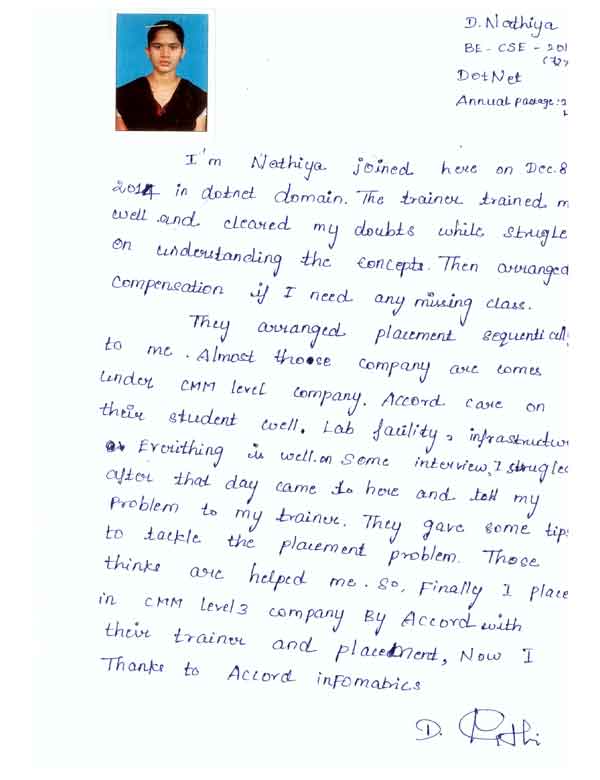 D. Nathiya
BE - CSE - 201
DotNet
Annual package : 2
I'm Nathiya joined here on Dec. 8
2014 in dotnet domain. The trainer trained m
well and cleared my doubts while strugle
on understanding the concepts. Then arranged
compensation if I need any missing class.
They arranged placement sequentically
to me. Almost thoose company are comes
under CMM level company. Accord care on
their student well. Lab facility, infrastructure
Everithing is well. on Some interview, I strugled
after that day came to here and tell my
problem to my trainer. They gave some tips
to tackle the placement problem. Those
thinks are helped me. So, Finally I place
in CMM level 3 company By Accord with
their trainer and placement, Now I
Thanks to Accord infomatrics
D.